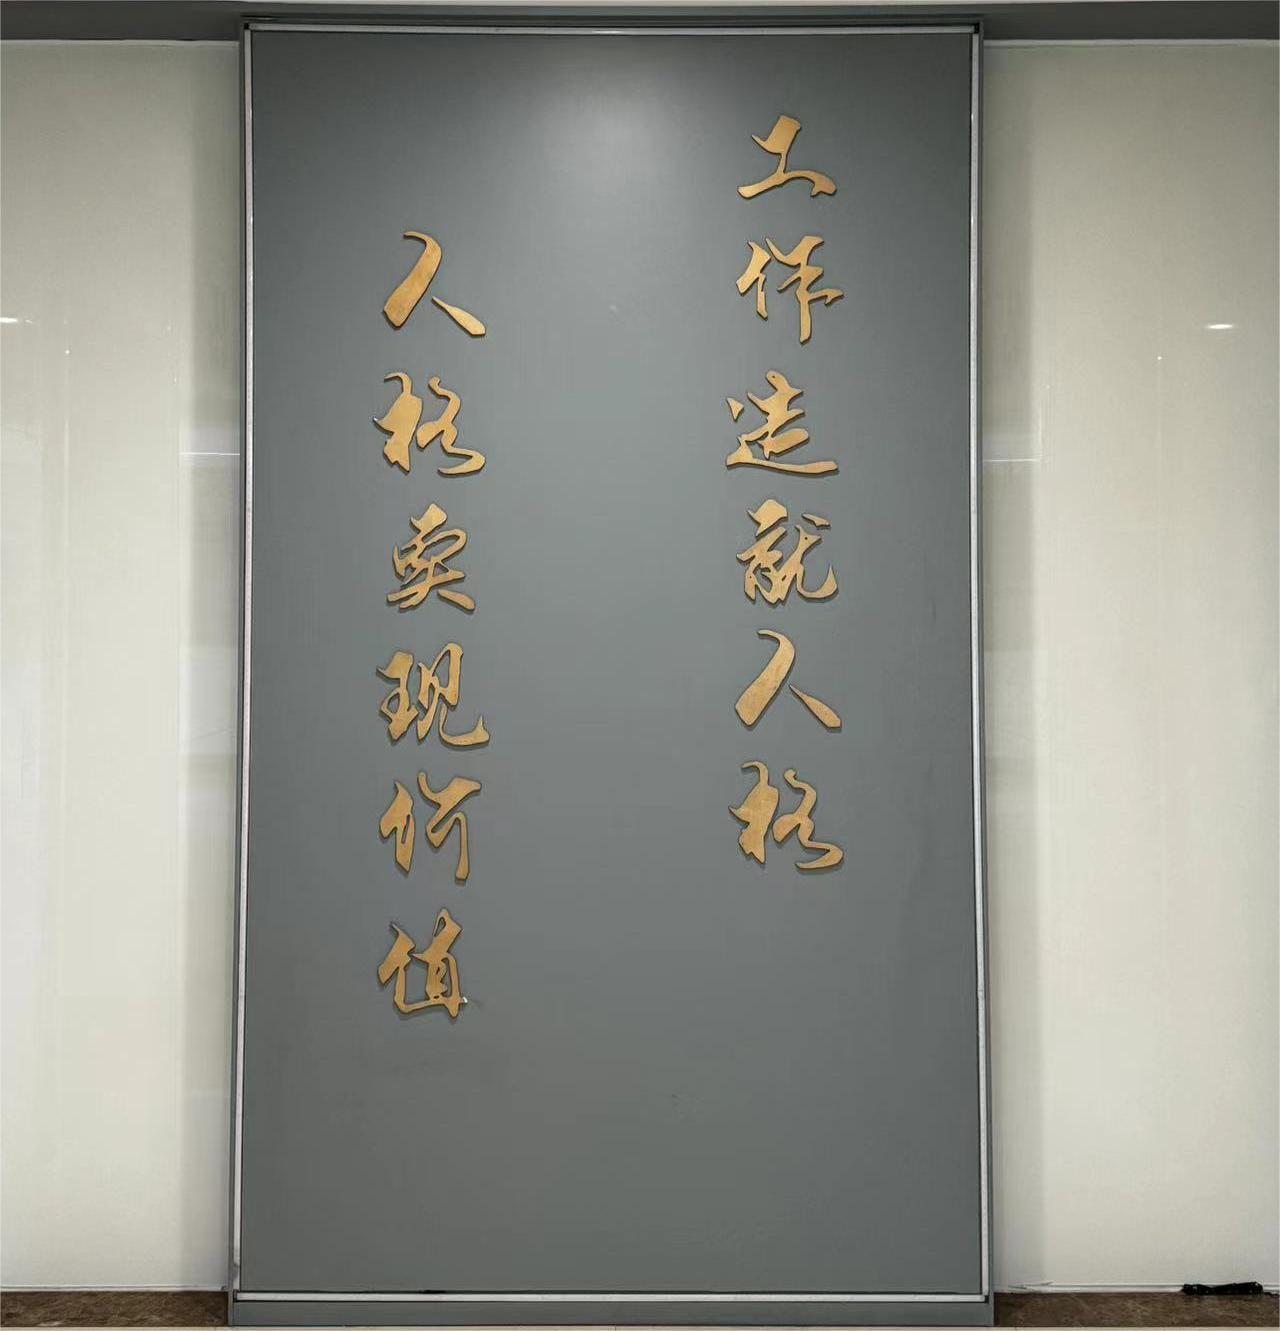 工作造就人格
人格实现价值